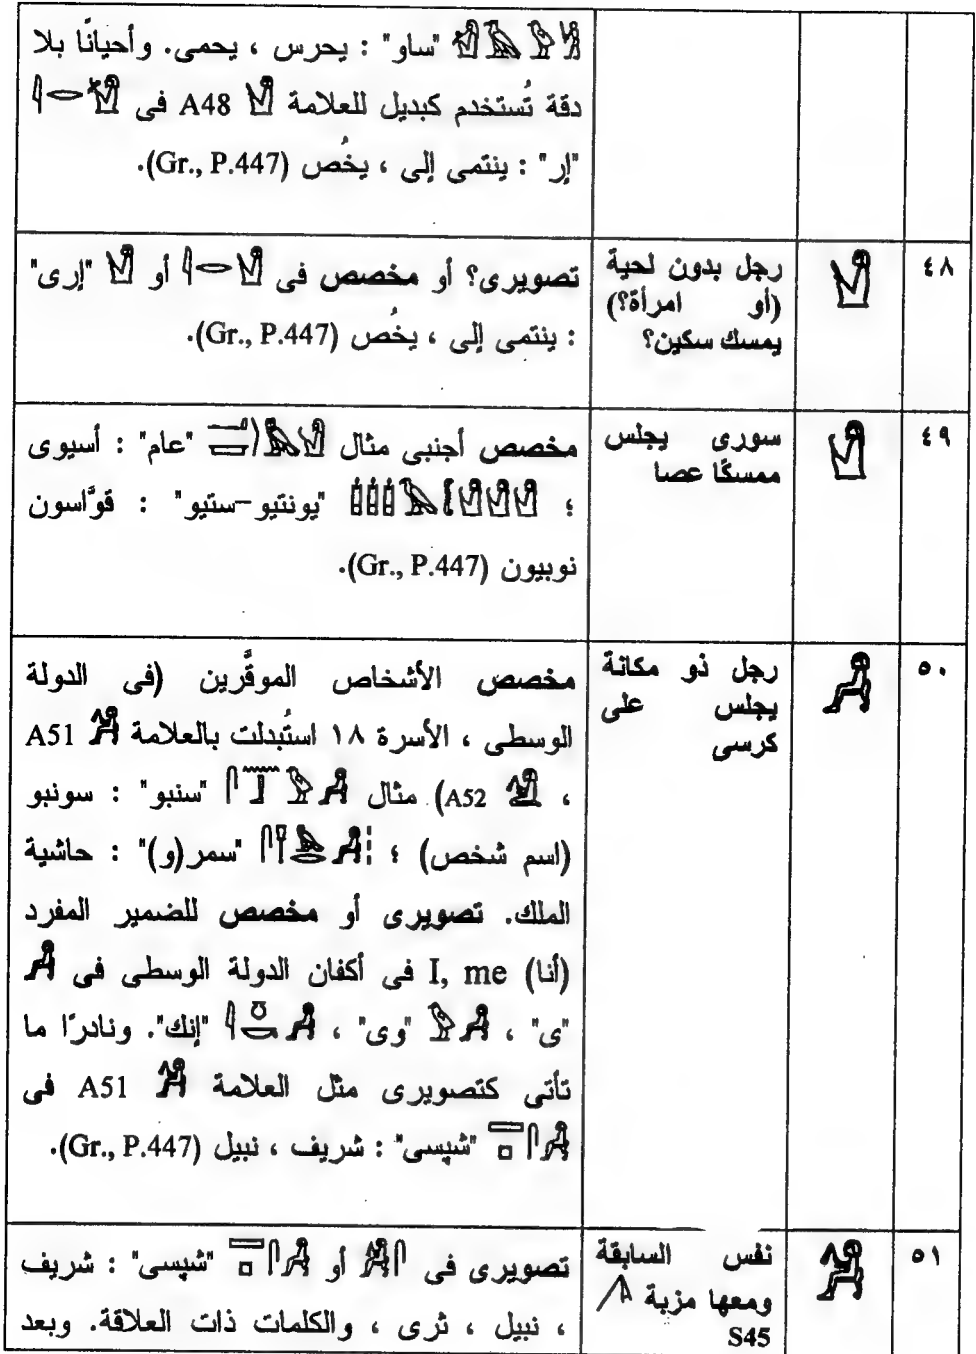 "ساو" : يحرس ، يحمى. وأحيانًا بلا
دقة تُستخدم كبديل للعلامة A48 فى
"إر" : ينتمى إلى ، يخُص (Gr., P.447).
٤٨
رجل بدون لحية
(أو امرأة؟)
يمسك سكين؟
تصويرى؟ أو مخصص فى أو "إرى"
: ينتمى إلى ، يخُص (Gr., P.447).
٤٩
سورى يجلس
ممسكًا عصا
مخصص أجنبى مثال "عام" : أسيوى
؛ "يونتيو-ستيو" : قوَّاسون
نوبيون (Gr., P.447).
٥٠
رجل ذو مكانة
يجلس على
كرسى
مخصص الأشخاص الموقَّرين (فى الدولة
الوسطى ، الأسرة ١٨ استُبدلت بالعلامة A51
، A52) مثال "سنبو" : سونبو
(اسم شخص) ؛ "سمر(و)" : حاشية
الملك. تصويرى أو مخصص للضمير المفرد
(أنا) I, me فى أكفان الدولة الوسطى فى
"ى" ، "وى" ، "إنك". ونادرًا ما
تأتى كتصويرى مثل العلامة A51 فى
"شپسى" : شريف ، نبيل (Gr., P.447).
٥١
نفس السابقة
ومعها مزبة
S45
تصويرى فى أو "شپسى" : شريف
، نبيل ، ثرى ، والكلمات ذات العلاقة. وبعد